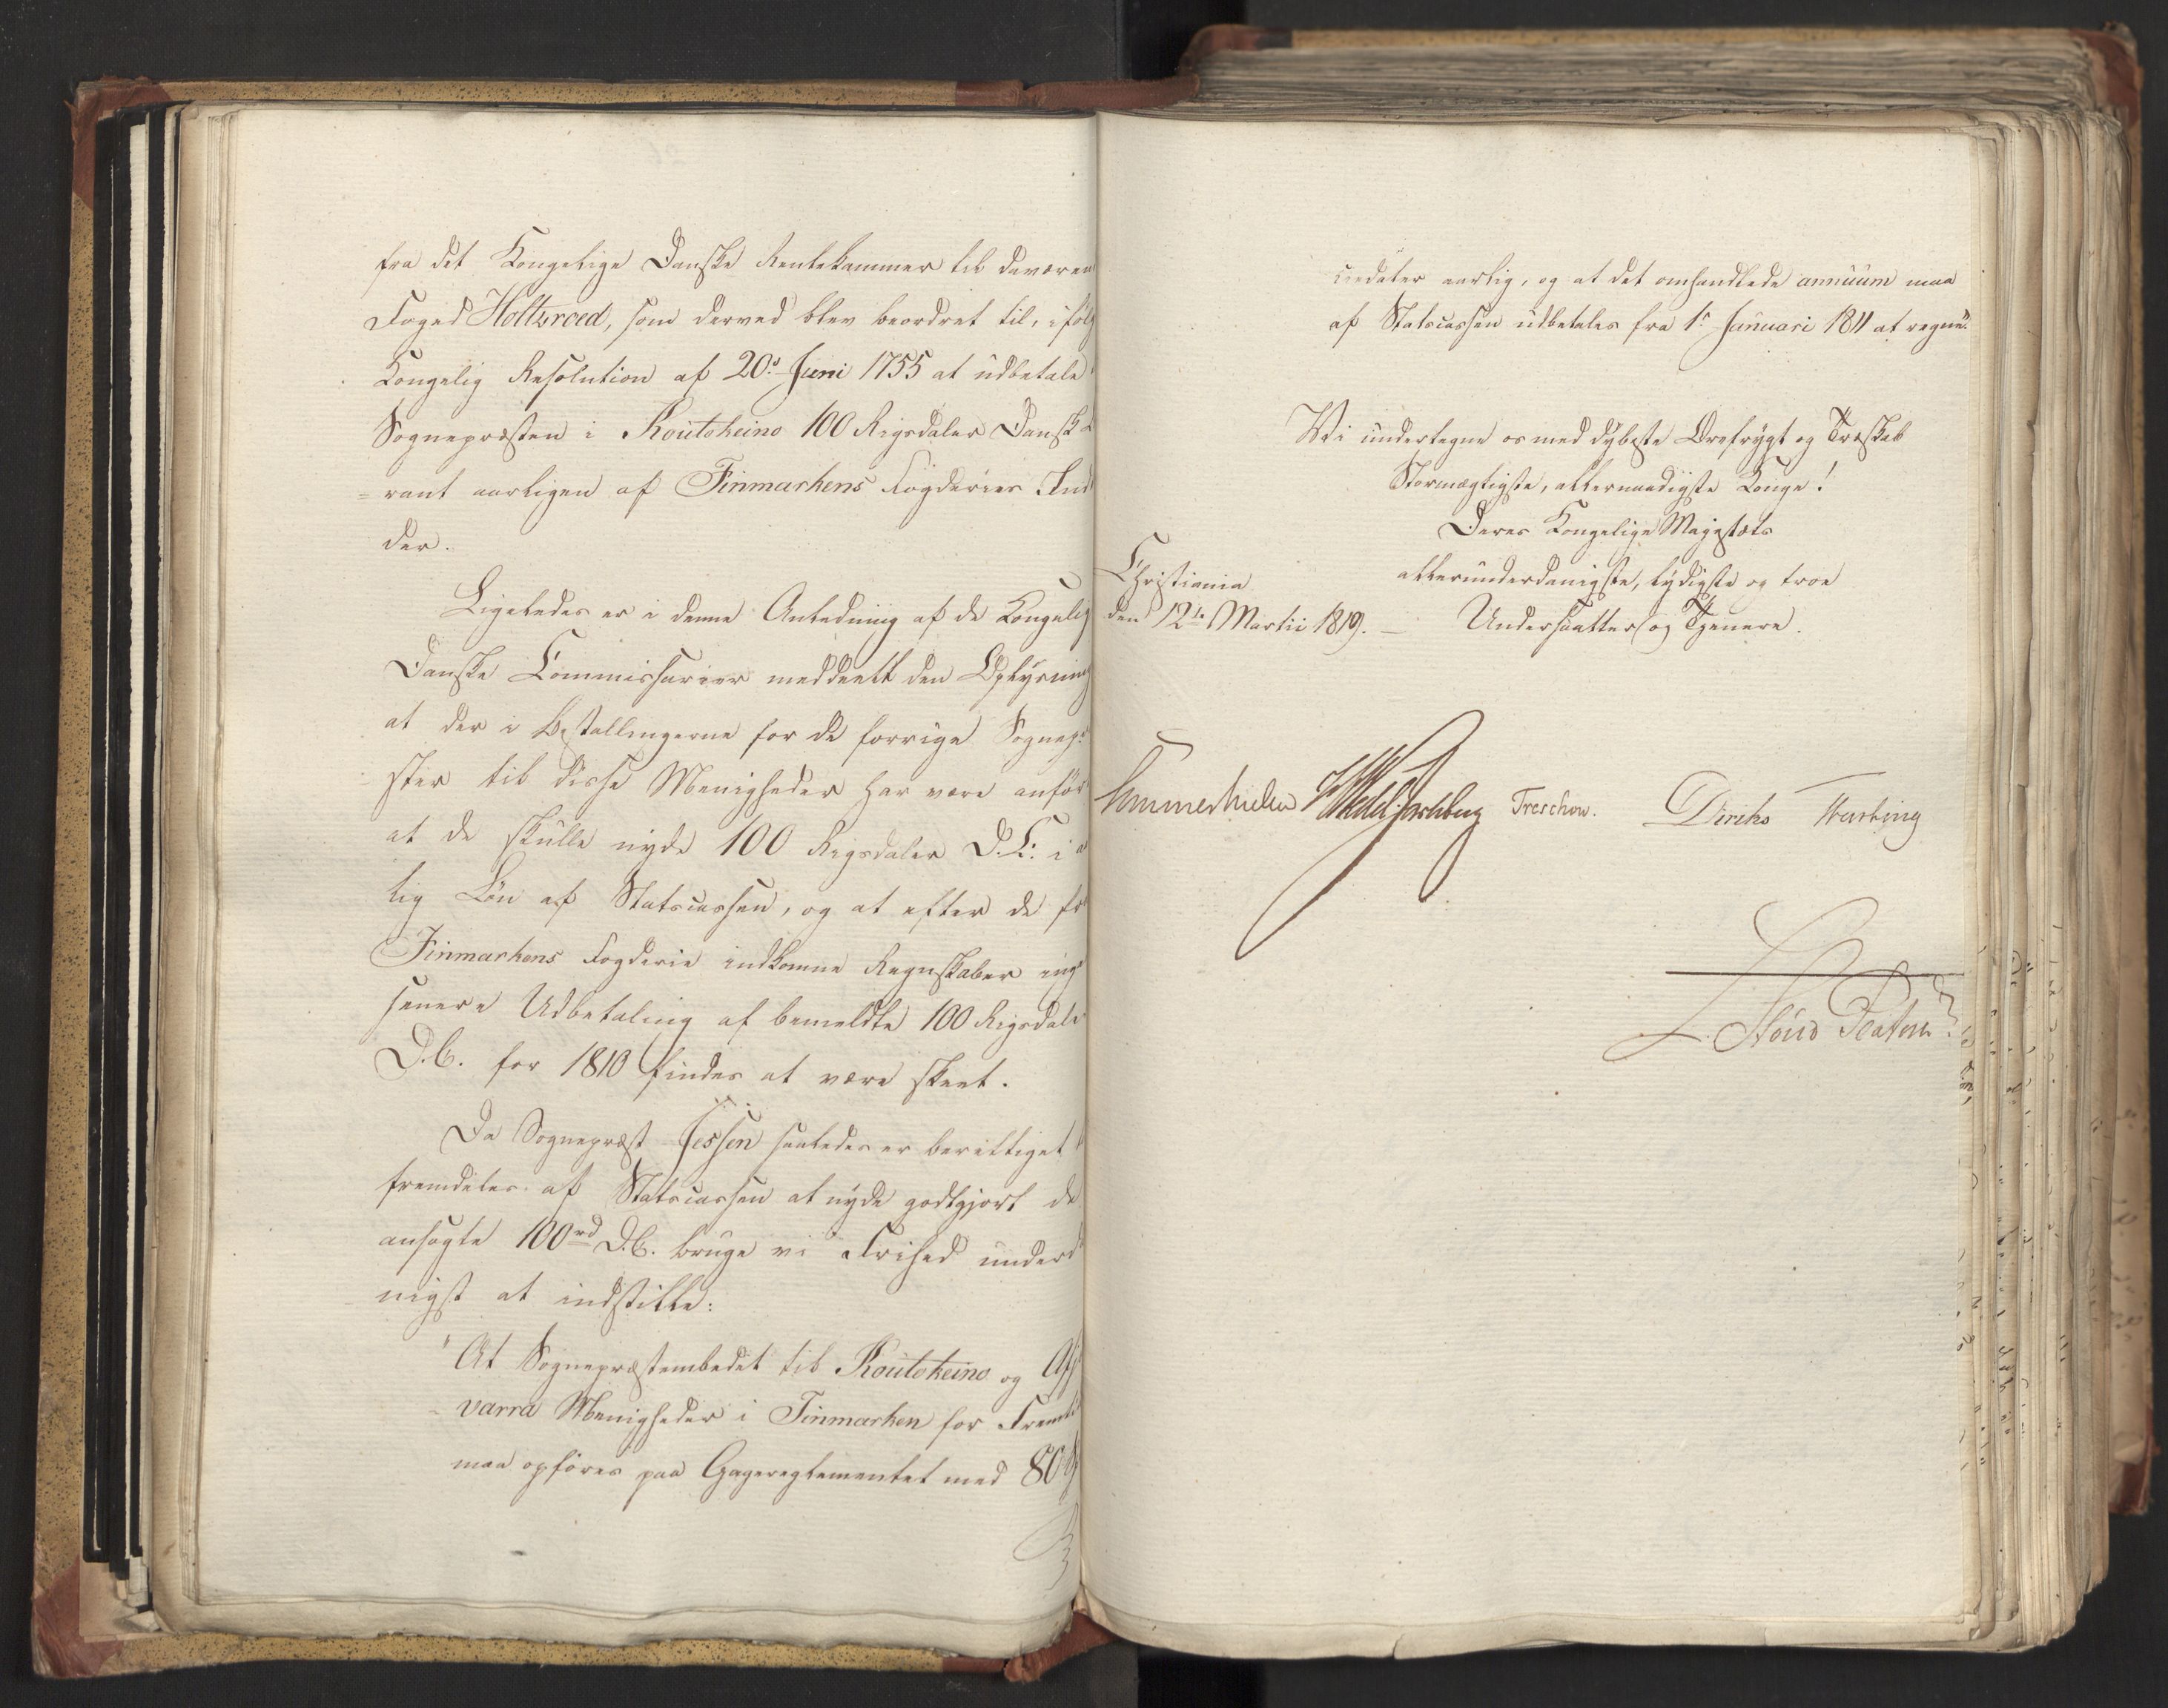 fra det Kongelige Danske Rentekammer til daværen
Foged Holtzroed, som derved blev beordret til, ifølg
Kongelig Resolution af 20de Juni 1755 at udbetale
Sognepræsten i Koutokeino 100 Rigsdaler Dansk C
rant aarligen af Finmarkens Fogderies Ind
der.
Ligeledes er i denne Anledning af de Kongelig
Danske Commissarier meddeelt den Oplysning
at der i Bestallingerne for de forrige Sognepr
ster til disse Menigheder har være anfør
at de skulle nyde 100 Rigsdaler D.C. i a
lig Løn af Statscassen, og at efter de fr
Finmarkens Fogderie indkomne Regnskaber ing
senere Udbetaling af bemeldte 100 Rigsdale
D.C. for 1810 findes at være skeet.
Da Sognepræst Jessen saaledes er berettiget
fremdeles af Statscassen at nyde godtgjort de
ansøgte 100rd D.C. bruge vi Frihed underd
nigst at indstille:
"At Sognepræstembedet til Koutokeino og
varra Menigheder i Finmarken for Fremti
maa opføres paa Gagereglementet med 80
aarlig, og at det omhandlede annuum maa
af Statscassen udbetales fra 1r Januari 1811 at regne."
Vi undertegne os med dybeste Ærefrygt og Troskab
Stormægtigste, allernaadigste Konge!
Deres Kongelige Majestæts
Christiania
allerunderdanigste, lydigste og troe
den 12te Martii 1819. — Undersaatter og Tjenere.
Sommerhielm Wedel Jarlsberg Treschow. Diriks Fasting